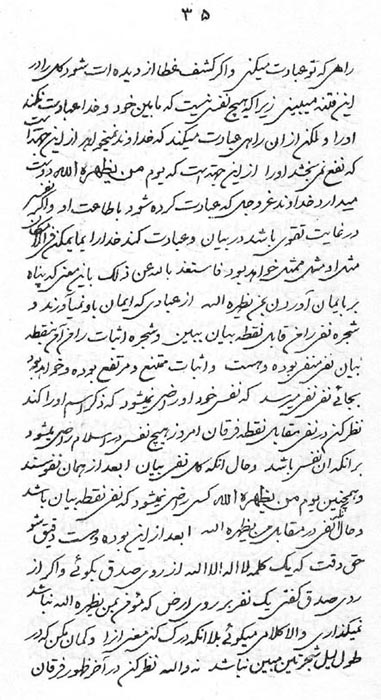 ۳۵
راهی که تو عبادت میکنی و اگر کشف غطا از دیده ات شود کل را در
این فتنه میبینی زیرا که هیچ نفسی نیست که مابین خود و خدا عبادت نکند
او را و لکن از آن راهی عبادت میکند که خداوند نمیخواهد از این جهت است
که نفع نمی‌بخشد او را از این جهت است که یوم من یظهره الله دوست
میدارد خداوند عزوجل که عبادت کرده شود باطاعت او و اگر نفسی
در غایت تقوی باشد در بیان و عبادت کند خدا را بما یمکن فی الامکان
مثل او مثل خواهد بود فاستعذ بالله عن ذلک باین معنی که پناه
بر بایمان آوردن بمن یظهره الله از عبادی که ایمان باو نمیآورند و
شجره نفی را در مقابل نقطه بیان ببین و شجره اثبات را نقطه
بیان نفی منفی بوده و هست و اثبات ممتنع و مرتفع بوده و خواهد بود
بجائی نفی نفی میرسد که نفس خود او راضی نمیشود که ذکر اسم او را کند
نظر کن در نفی مقابل نقطه فرقان امروز هیچ نفسی در اسلام راضی نمیشود
بر آنکه آن نفس باشد و حال آنکه کل نفی بیان ابعد از همان نفی هستند
و همچنین یوم من یظهره الله کسی راضی نمیشود که نفی نقطه بیان باشد
و حال آنکه نفی در مقابل من یظهره الله ابعد از این بوده و هست دقیق شو
حق دقت که یک کلمه لا اله الا الله از روی صدق بگوئی و اگر از
روی صدق گفتی یک نفی بر روی ارض که مؤمن بمن یظهره الله نباشد
نمیگذاری و الا کلامی میگوئی بلا آنکه درک کنی معنی آنرا و گمان مکن که در
طول لیل شجرتین مبین نباشد نه والله نظر کن در آخر ظهور فرقان